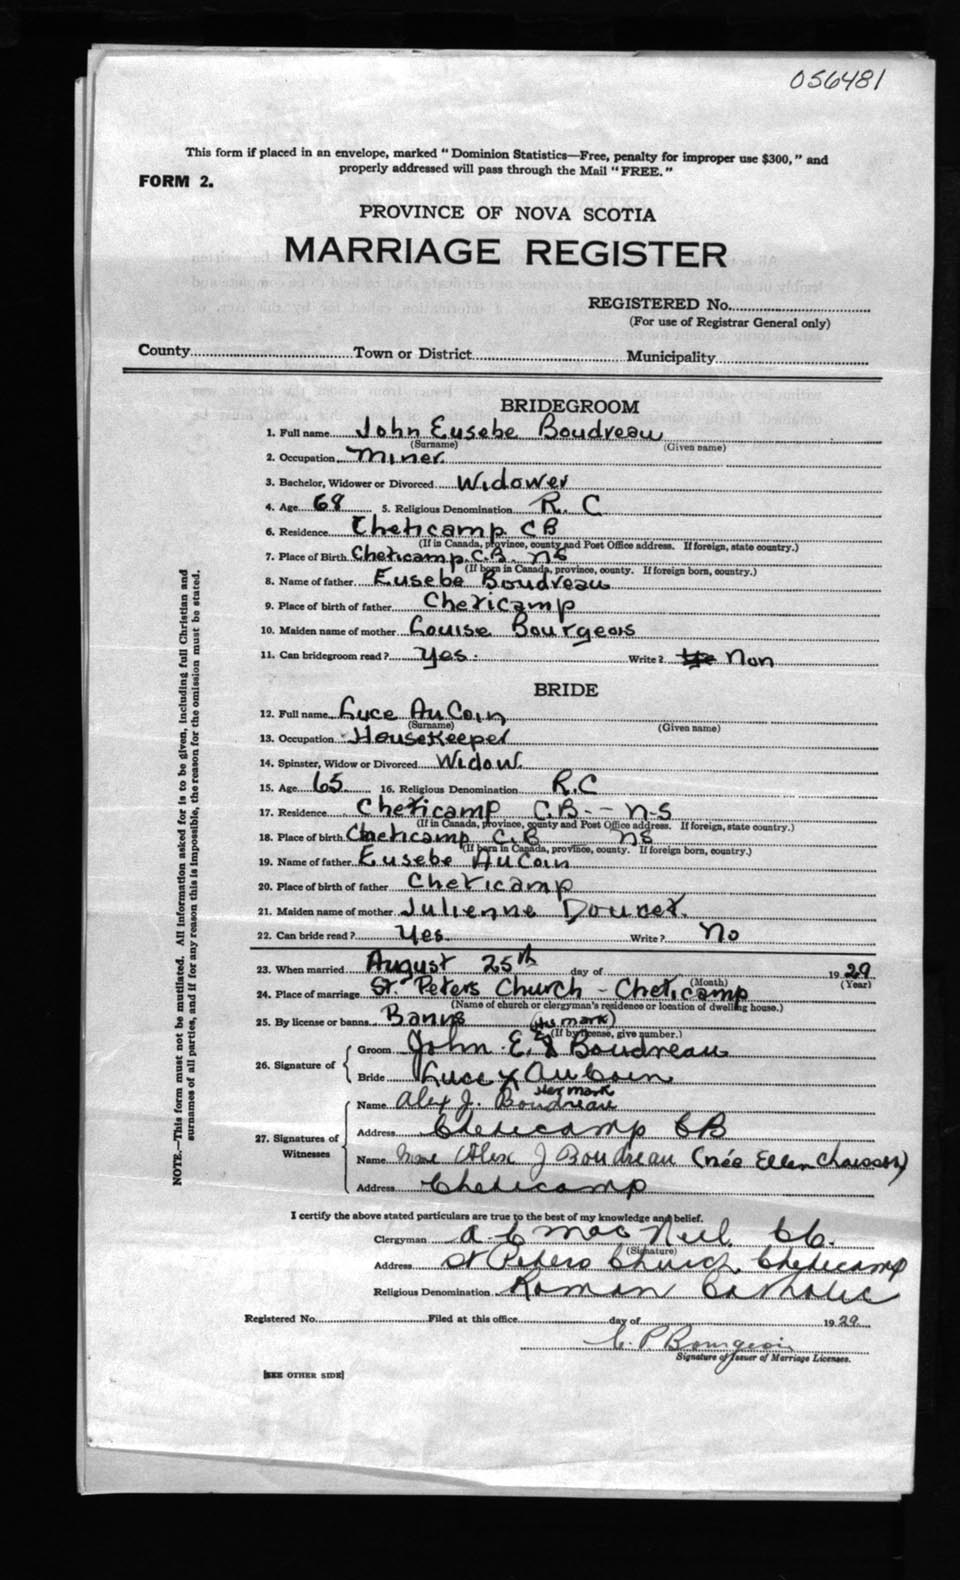 056481
This form if placed in an envelope, marked "Dominion Statistics—Free, penalty for improper use $300," and
properly addressed will pass through the Mail "FREE."
FORM 2.
PROVINCE OF NOVA SCOTIA
MARRIAGE REGISTER
REGISTERED No.
(For use of Registrar General only)
County Town or District Municipality
BRIDEGROOM
1. Full name John Eusebe Boudreau
(Surname) (Given name)
2. Occupation Miner
3. Bachelor, Widower or Divorced Widower
4. Age 68 5. Religious Denomination R. C
6. Residence Cheticamp CB
(If in Canada, province, county and Post Office address. If foreign, state country.)
7. Place of Birth Cheticamp. C.B. NS
(If born in Canada, province, county. If foreign born, country.)
8. Name of father Eusebe Boudreau
9. Place of birth of father Cheticamp
10. Maiden name of mother Louise Bourgeois
11. Can bridegroom read? Yes. Write? Non
BRIDE
12. Full name Luce AuCoin
(Surname) (Given name)
13. Occupation Housekeeper
14. Spinster, Widow or Divorced Widow.
15. Age 65 16. Religious Denomination R.C
17. Residence Cheticamp C.B - - N-S
(If in Canada, province, county and Post Office address. If foreign, state country.)
18. Place of birth Cheticamp C.B NS
(If born in Canada, province, county. If foreign born, country.)
19. Name of father Eusebe AuCoin
20. Place of birth of father Cheticamp
21. Maiden name of mother Julienne Doucet.
22. Can bride read? Yes. Write? No
23. When married August 25th day of 1929
(Month) (Year)
24. Place of marriage St. Peters Church - Cheticamp
(Name of church or clergyman's residence or location of dwelling house.)
25. By license or banns Banns
(If by license, give number.)
(His mark)
26. Signature of
Groom John E. X Boudreau
Bride Luce X AuCoin
Her mark
27. Signatures of Witnesses
Name Alex J. Boudreau
Address Cheticamp CB
Name Mme Alex J Boudreau (née Ellen Chaisson)
Address Cheticamp
I certify the above stated particulars are true to the best of my knowledge and belief.
Clergyman MacNeil
(Signature)
Address St Peters Church, Cheticamp
Religious Denomination Roman Catholic
Registered No. Filed at this office day of 1929
C. P Bourgeois
Signature of Issuer of Marriage Licenses.
[SEE OTHER SIDE]
NOTE.—This form must not be mutilated. All information asked for is to be given, including full Christian and
surnames of all parties, and if for any reason this is impossible, the reason for the omission must be stated.